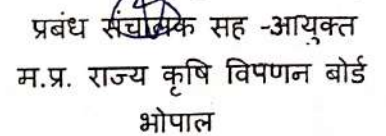 प्रबंध संचालक सह -आयुक्त
म.प्र. राज्य कृषि विपणन बोर्ड
भोपाल